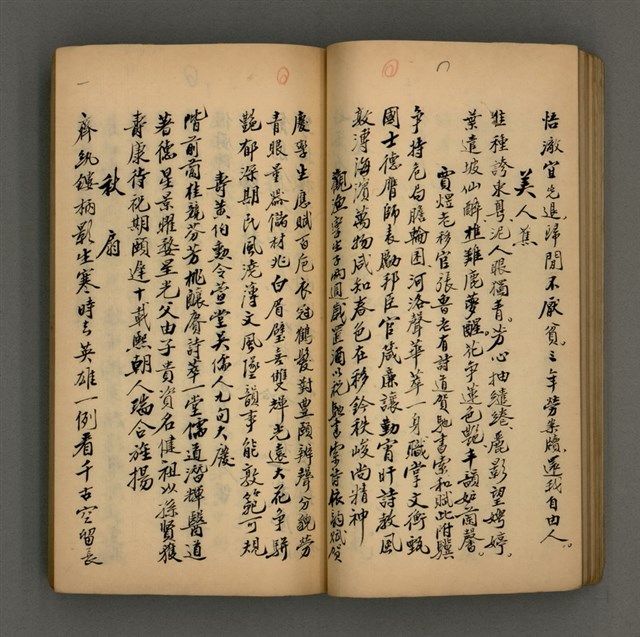 怡激宜先退歸閒不厭貧三年勞案牘還我自由人
美人蕉
佳種誇來粵泥人眼獨青芳心抽繾綣麗影望娉婷
葉遺坡仙醉樵難鹿夢醒花爭蓮色艷丰韻妒蘭馨
賈煜老移官張魯老有詩道賀馳書索和賦此附驥
爭持危局膽輪囷河洛聲華萃一身職掌文衡甄
國士德膺師表勵邦臣官箴廉讓勤宵旰詩教風
敦溥海濱萬物咸知春色在移鈐秩峻尚精神
觀漁學生子兩週歲置酒以祝馳書索詩依韵賦賀
慶學生應賦百卮衣冠鶴髮對豊頤辨聲分貌勞
青眼量器儲材兆白眉璧喜雙輝光遠大花爭駢
艷郁深期民風澆薄文風墜韻事能敦範可規
壽黃伯勳令萱堂吳孺人九旬大慶
階前蘭桂競芬芳桃釀賡詩萃一堂儒道潛輝醫道
著德星景曜婺星光父由子貴資名健祖以孫賢獲
壽康待祝期頤遲十載熙朝人瑞合旌揚
秋扇
齊紈鏤柄影生寒時去英雄一例看千古空留長